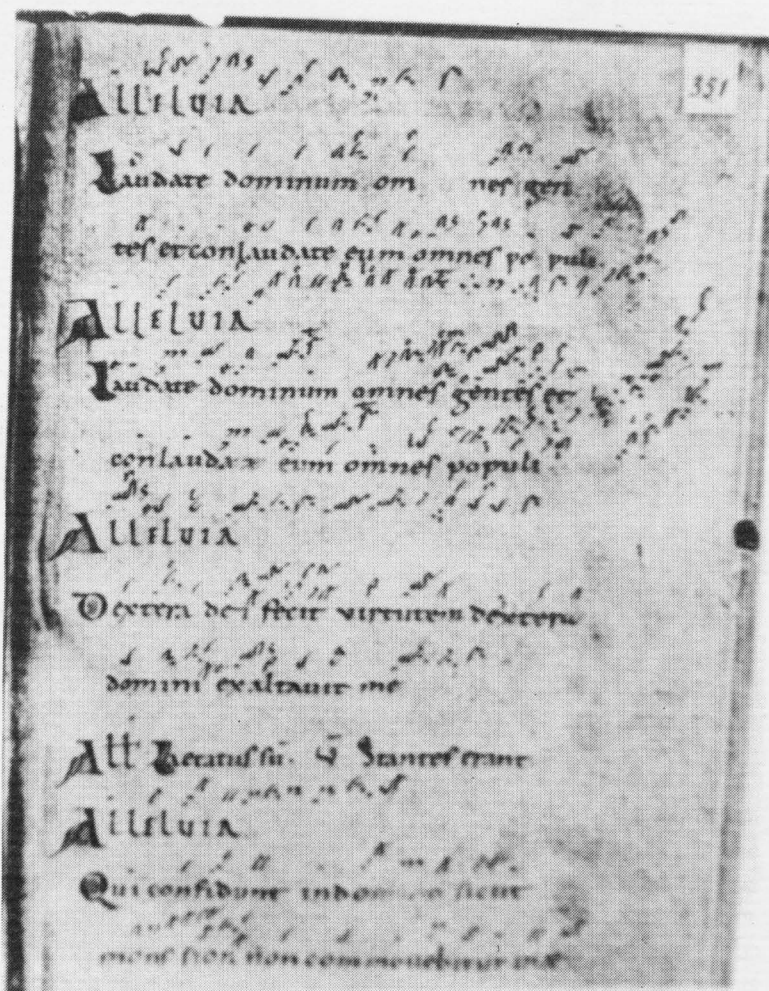 351
Alleluia
Laudate dominum om nes gen
tes et conlaudate eum omnes po puli
Alleluia
Laudate dominum omnes gentes et
conlaudate eum omnes populi
Alleluia
Dextera dei fecit virtutem dextera
domini exaltavit me
All Laetatus sū. V Stantes erant
Alleluia
Qui confidunt in domino sicut
mons sion non commovebitur in